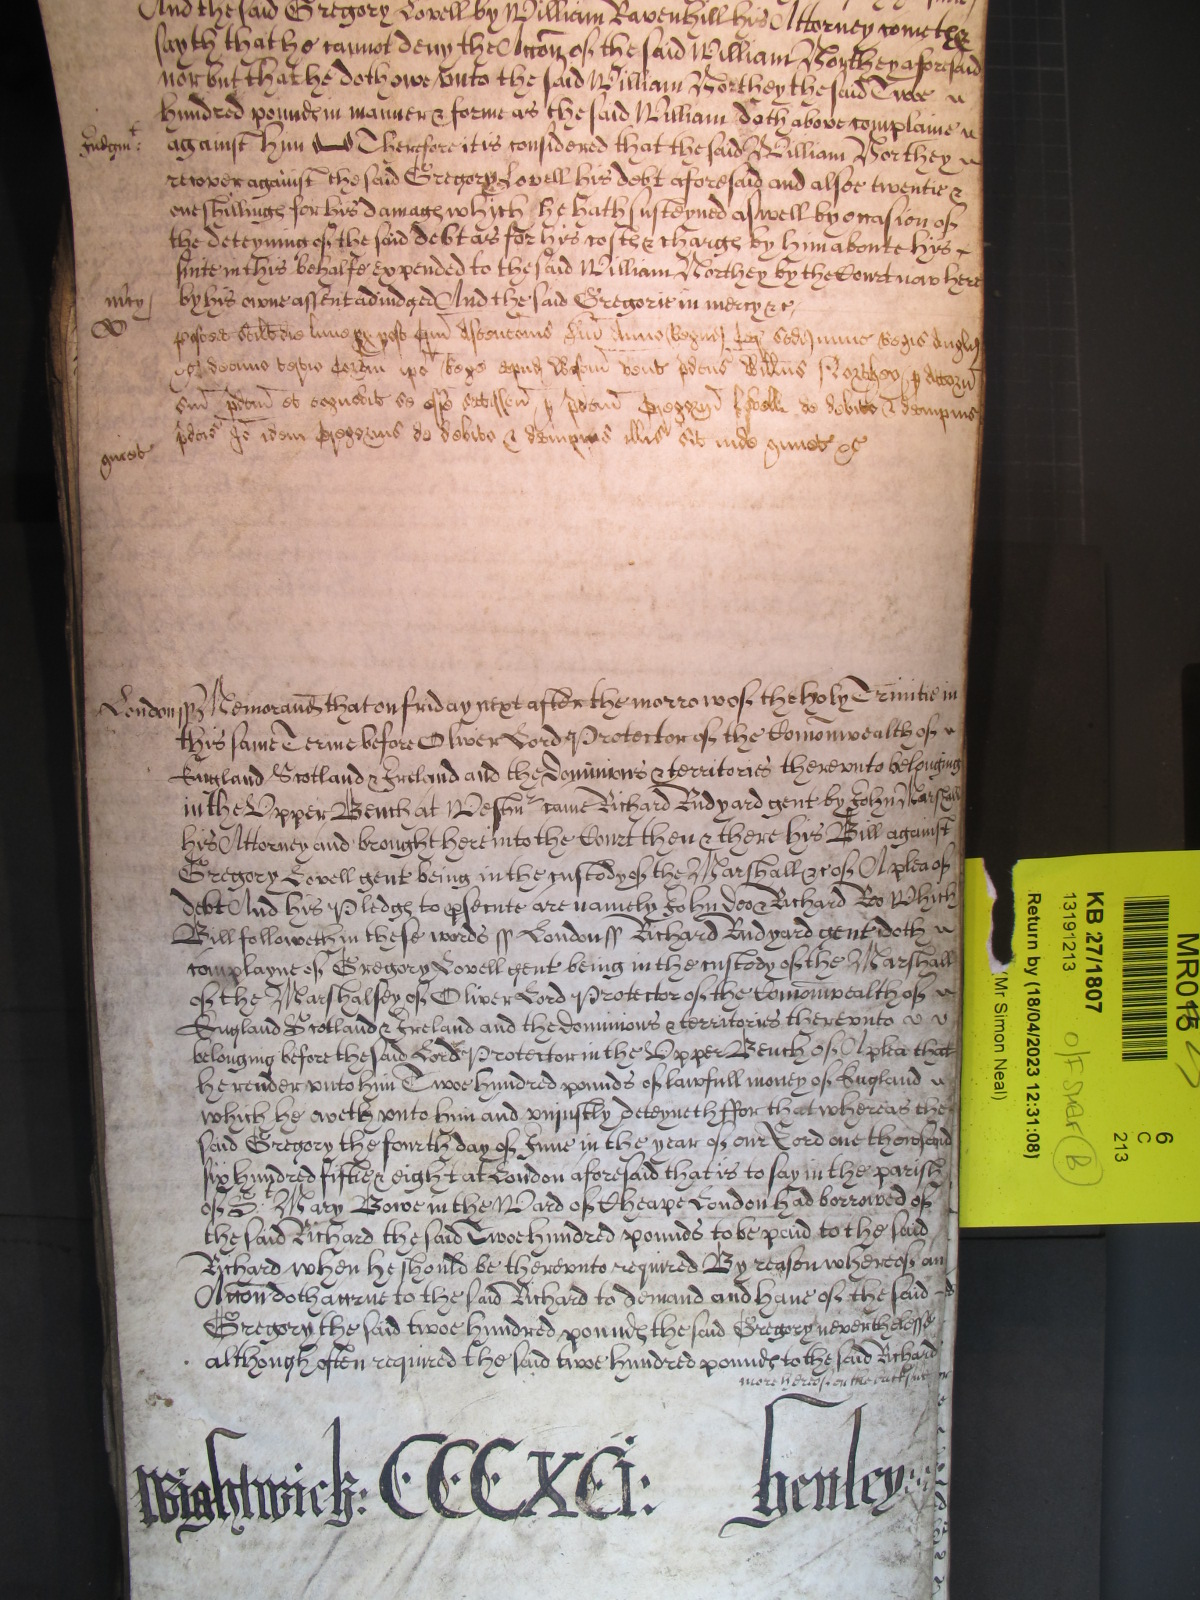 And the said Gregory Lovell by William Ravenhill his Attorney cometh &
sayth that he cannot deny the Accon of the said William Northey aforesaid
nor but that he doth owe unto the said William Northey the said Twoe
hundred pounds in manner & forme as the said William doth above complaine
Judgmt: against him Therefore it is considered that the said William Northey
recover against the said Gregory Lovell his debt aforesaid and alsoe twentie &
one shillings for his damages which he hath susteyned aswell by occasion of
the deteyning of the said debt as for his costs & charges by him aboute his
suite in this behalfe expended to the said William Northey by the Court now here
mcy by his owne assent adiudged And the said Gregorie in mercy &c
Postea scilt die lune px post Anno Regni sedi nunc Regis Anglie
&c decimo tertio coram ipo Rege apud Westm venit pdcus Willus Northey p Attorn
suu pdcm et cognovit se esse satisfcm p pdcm Gregoriu Lovell de debito & dampnis
pdcis Io idem Gregorius de debito & dampnis illis sit inde quiet &c
quiet
London ss Memorand that on friday next after the morrow of the holy Trinitie in
this same Terme before Oliver Lord Protector of the Comonwealth of
England Scotland & Ireland and the Dominions & territories thereunto belonging
in the Upper Bench at Westmr came Richard Rudyard gent by John Marshall
his Attorney and brought here into the Court then & there his Bill against
Gregory Lovell gent being in the custody of the Marshall &c of A plea of
debt And his Pledges to psecute are namely John Doo & Richard Roo Which
Bill followeth in these words ss London ss Richard Rudyard gent doth
complayne of Gregory Lovell gent being in the custody of the Marshall
of the Marshalsey of Oliver Lord Protector of the Comonwealth of
England Scotland & Ireland and the dominions & territories thereunto
belonging before the said Lord Protector in the Upper Bench of A plea that
he render unto him Twoe hundred pounds of lawfull money of England
which he oweth unto him and uniustly deteyneth ffor that whereas the
said Gregory the fourth day of June in the year of our Lord one thowsand
six hundred fiftie & eight at London aforesaid that is to say in the parish
of St Mary Bowe in the Ward of Cheape London had borrowed of
the said Richard the said Twoe hundred pounds to be paid to the said
Richard when he should be thereunto required By reason whereof an
Accon doth accrue to the said Richard to demand and have of the said
Gregory the said twoe hundred pounds the said Gregory neverthelesse
although often required the said twoe hundred pounds to the said Richard
more hereof on the backside
Wightwick: CCCXCi: henley:
MR015
6
C
213
KB 27/1807
13191213
Return by (18/04/2023 12:31:08)
(Mr Simon Neal)